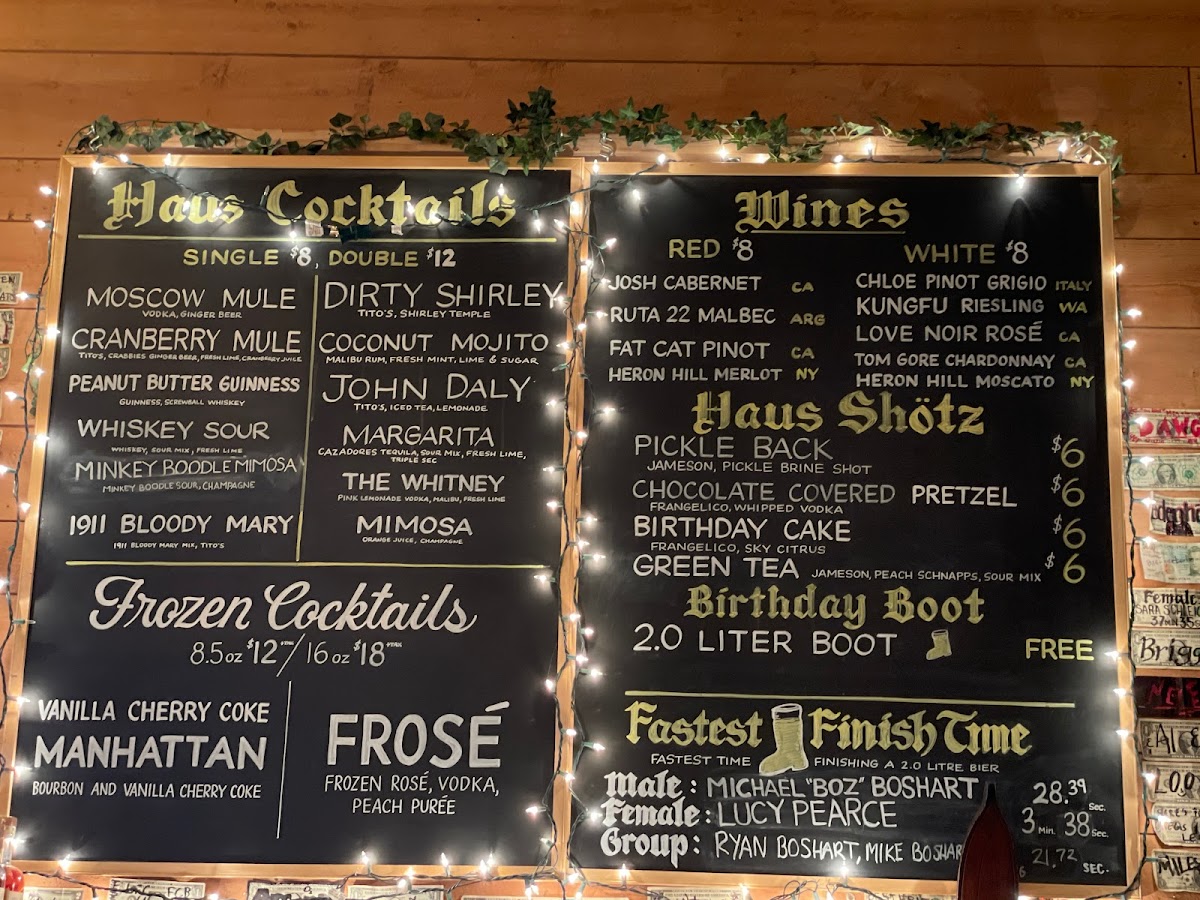 Haus Cocktails
SINGLE $8, DOUBLE $12
MOSCOW MULE
VODKA, GINGER BEER
CRANBERRY MULE
TITO'S, CRABBIES GINGER BEER, FRESH LIME, CRANBERRY JUICE
PEANUT BUTTER GUINNESS
GUINNESS, SCREWBALL WHISKEY
WHISKEY SOUR
WHISKEY, SOUR MIX, FRESH LIME
MINKEY BOODLE MIMOSA
MINKEY BOODLE SOUR, CHAMPAGNE
1911 BLOODY MARY
1911 BLOODY MARY MIX, TITO'S
DIRTY SHIRLEY
TITO'S, SHIRLEY TEMPLE
COCONUT MOJITO
MALIBU RUM, FRESH MINT, LIME & SUGAR
JOHN DALY
TITO'S, ICED TEA, LEMONADE
MARGARITA
CAZADORES TEQUILA, SOUR MIX, FRESH LIME,
TRIPLE SEC
THE WHITNEY
PINK LEMONADE VODKA, MALIBU, FRESH LIME
MIMOSA
ORANGE JUICE, CHAMPAGNE
Frozen Cocktails
8.5 oz $12 / 16 oz $18
VANILLA CHERRY COKE
MANHATTAN
BOURBON AND VANILLA CHERRY COKE
FROSÉ
FROZEN ROSÉ, VODKA,
PEACH PURÉE
Wines
RED $8
JOSH CABERNET CA
RUTA 22 MALBEC ARG
FAT CAT PINOT CA
HERON HILL MERLOT NY
WHITE $8
CHLOE PINOT GRIGIO ITALY
KUNGFU RIESLING WA
LOVE NOIR ROSÉ CA
TOM GORE CHARDONNAY CA
HERON HILL MOSCATO NY
Haus Shötz
PICKLE BACK $6
JAMESON, PICKLE BRINE SHOT
CHOCOLATE COVERED PRETZEL $6
FRANGELICO, WHIPPED VODKA
BIRTHDAY CAKE $6
FRANGELICO, SKY CITRUS
GREEN TEA JAMESON, PEACH SCHNAPPS, SOUR MIX $6
Birthday Boot
2.0 LITER BOOT FREE
Fastest Finish Time
FASTEST TIME FINISHING A 2.0 LITRE BIER
Male: MICHAEL "BOZ" BOSHART 28.39 Sec.
Female: LUCY PEARCE 3 Min. 38 Sec.
Group: RYAN BOSHART, MIKE BOSHAR 21.72 SEC.
DAWG
Female